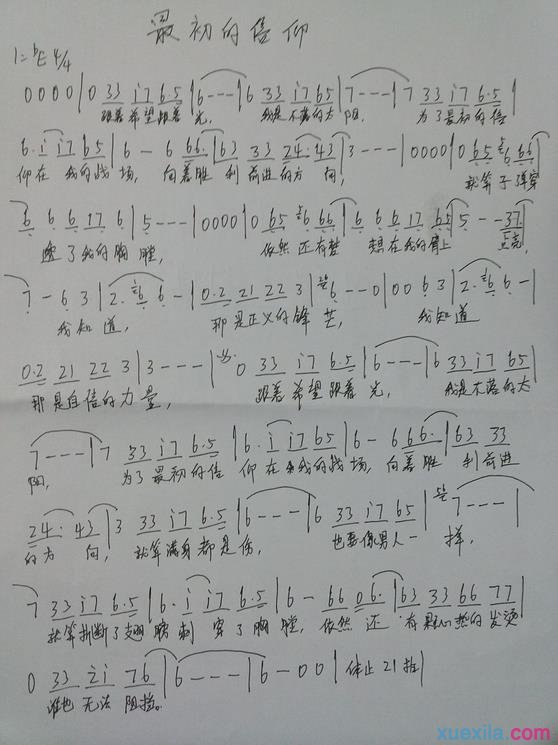 最初的信仰
1=ᵇE 4/4
0000|0 33 i7 6·5|6---|6 33 i7 65|7---|7 33 i7 6·5|
跟着希望跟着 光, 我是不落的太 阳, 为了最初的信
6·i i7 65|6 - 6 66·|63 33 24·43|3---|0000|0 65 66 6|
仰在 我的战 场, 向着胜 利 前进的方 向, 就算子弹穿
6 6 6 17 6|5---|0000|0 65 6 66|6 6 6 17 65|5 - - 37|
透了我的胸膛, 依然还有梦 想在我的肩上
7 - 6 3|2· 6 6 -|0·2 21 22 3|6 - - 0|00 6 3|2· 6 6 -|
我知道, 那是正义的锋芒, 我知道
0·2 21 22 3|3---| 0 33 i7 6·5|6---|6 33 i7 65|
那是自信的力量, 跟着希望跟着 光, 我是不落的太
7---|7 33 i7 6·5|6·i i7 65|6 - 6 66·|63 33
阳, 为了最初的信 仰在 我的战场, 向着胜 利前进
24·43|3 33 i7 6·5|6---|6 33 i7 65|7---|
的方 向, 就算满身都是伤, 也要像男人一 样,
7 33 i7 6·5|6·i i7 6·5|6 - 66 06·|63 33 66 77|
就算折断了翅 膀刺 穿了胸膛, 依然 还 有果心热的发烫
0 33 2i 76|6---|6-00|休止21拍|
谁也无法 阻挡。
xuexila.com